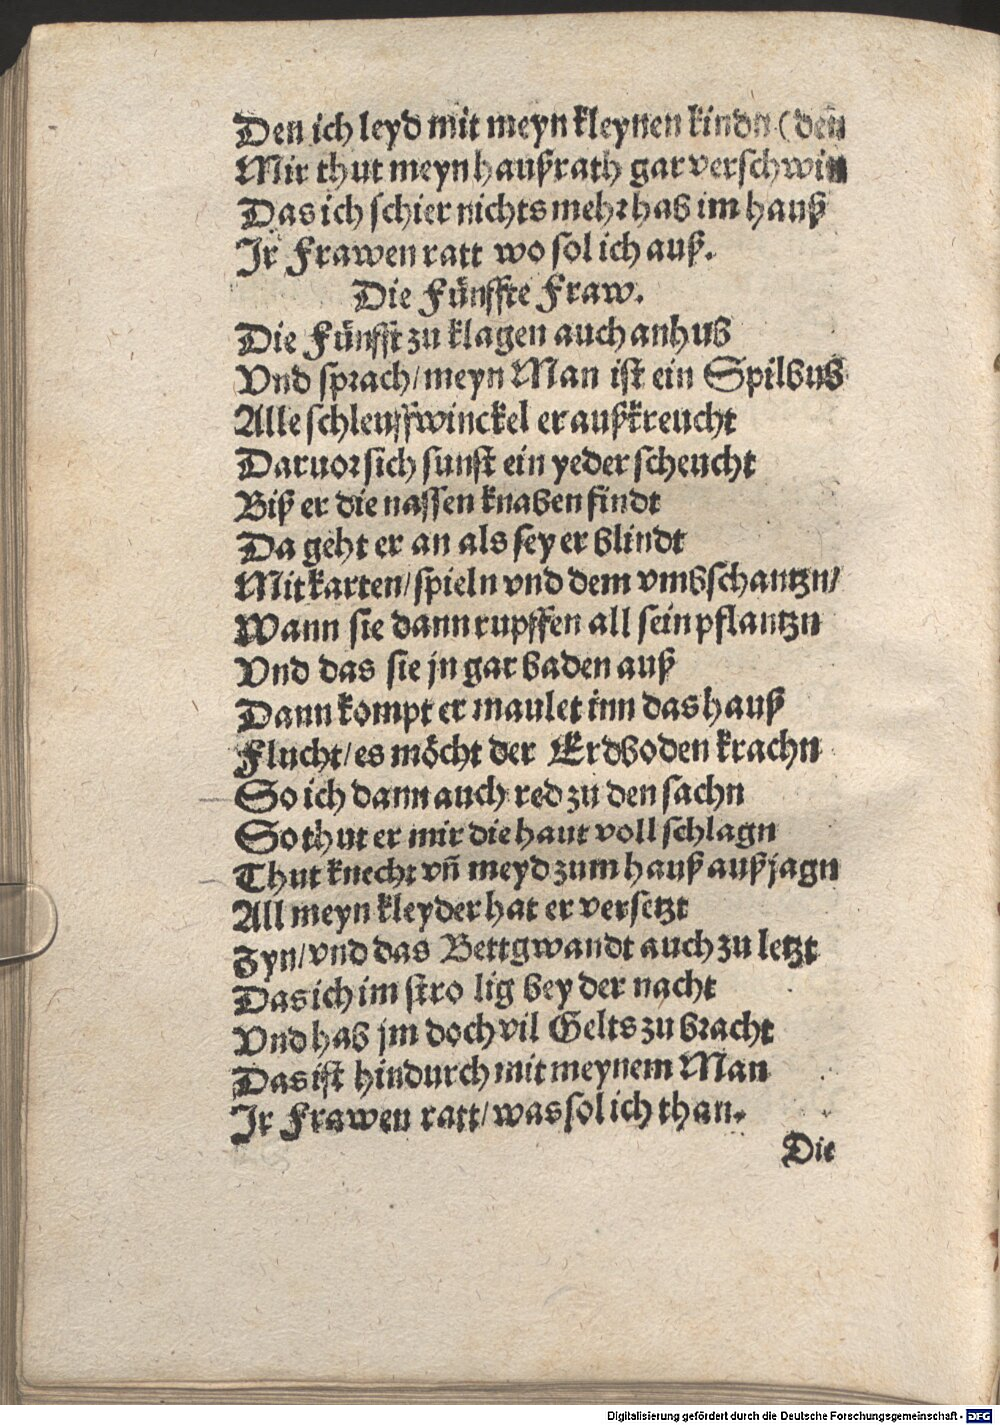 Den ich leyd mit meyn kleynen kindn (den
Mir thut meyn haußrath gar verschwin
Das ich schier nichts mehr hab im hauß
Jr Frawen ratt wo sol ich auß.
Die Fünffte Fraw.
Die Fünfft zu klagen auch anhub
Vnd sprach/ meyn Man ist ein Spilbub
Alle schleuffwinckel er außkreucht
Daruor sich sunst ein yeder scheucht
Biß er die nassen knaben findt
Da geht er an als sey er blindt
Mit karten/ spieln vnd dem vmbschantzn/
Wann sie dann rupffen all sein pflantzn
Vnd das sie jn gar baden auß
Dann kompt er maulet inn das hauß
Flucht/ es möcht der Erdboden krachn
So ich dann auch red zu den sachn
So thut er mir die haut voll schlagn
Thut knecht vñ meyd zum hauß außjagn
All meyn kleyder hat er versetzt
Zyn/ vnd das Bettgwandt auch zu letzt
Das ich im stro lig bey der nacht
Vnd hab jm doch vil Gelts zu bracht
Das ist hindurch mit meynem Man
Jr Frawen ratt/ was sol ich than.
Die
Digitalisierung gefördert durch die Deutsche Forschungsgemeinschaft - DFG